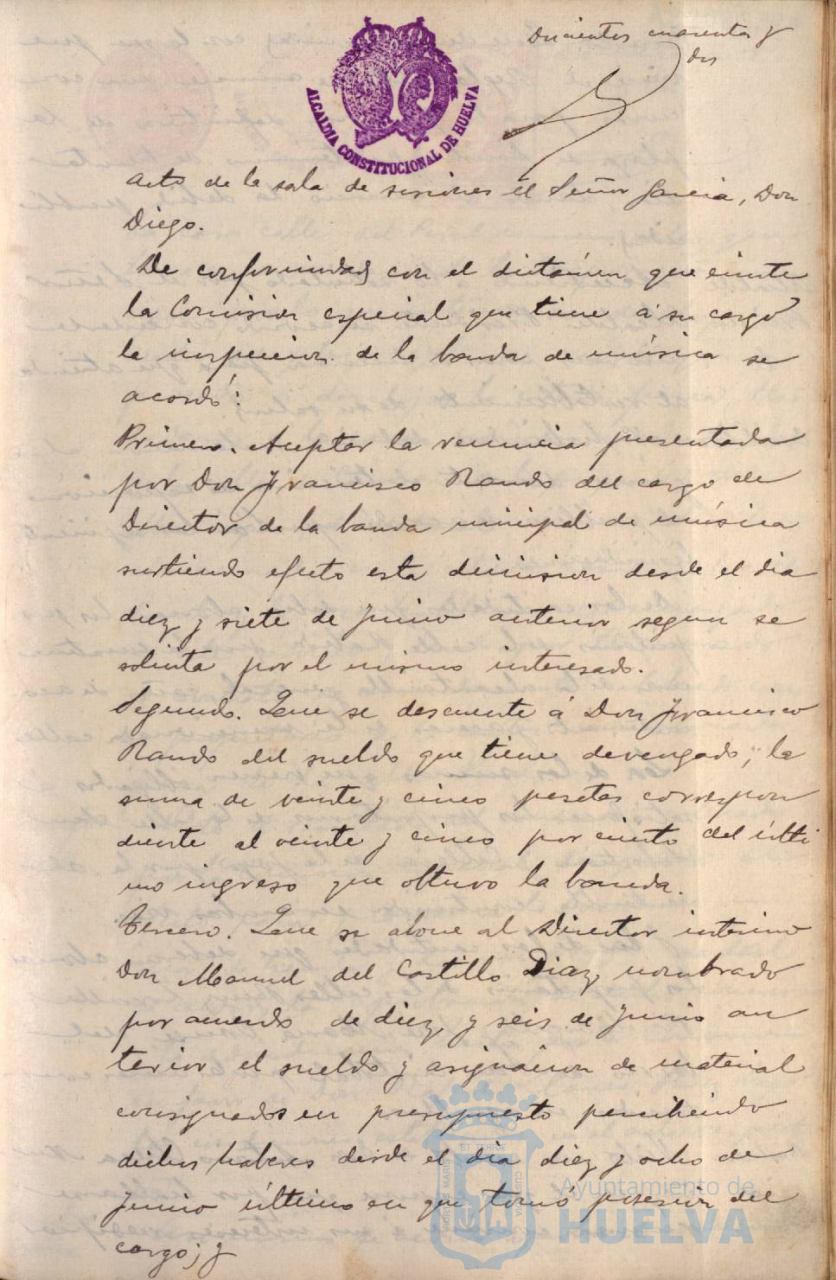 Doscientos cuarenta y
dos
ALCALDIA CONSTITUCIONAL DE HUELVA
acto de la sala de sesiones el Señor Garcia, Don
Diego.
De conformidad con el dictámen que emite
la Comision especial que tiene á su cargo
la inspeccion de la banda de música se
acordó:
Primero. Aceptar la renuncia presentada
por Don Francisco Rando del cargo de
Director de la banda municipal de música
surtiendo efecto esta dimision desde el dia
diez y siete de Junio anterior segun se
solicita por el mismo interesado.
Segundo. Que se descuente á Don Francisco
Rando del sueldo que tiene devengado, la
suma de veinte y cinco pesetas correspon
diente al veinte y cinco por ciento del últi
mo ingreso que obtuvo la banda.
Tercero. Que se abone al Director interino
Don Manuel del Castillo Diaz, nombrado
por acuerdo de diez y seis de Junio an
terior el sueldo y asignacion de material
consignados en presupuesto percibiendo
dichos haberes desde el dia diez y ocho de
Junio último en que tomó posesion del
cargo; y
Ayuntamiento de
HUELVA